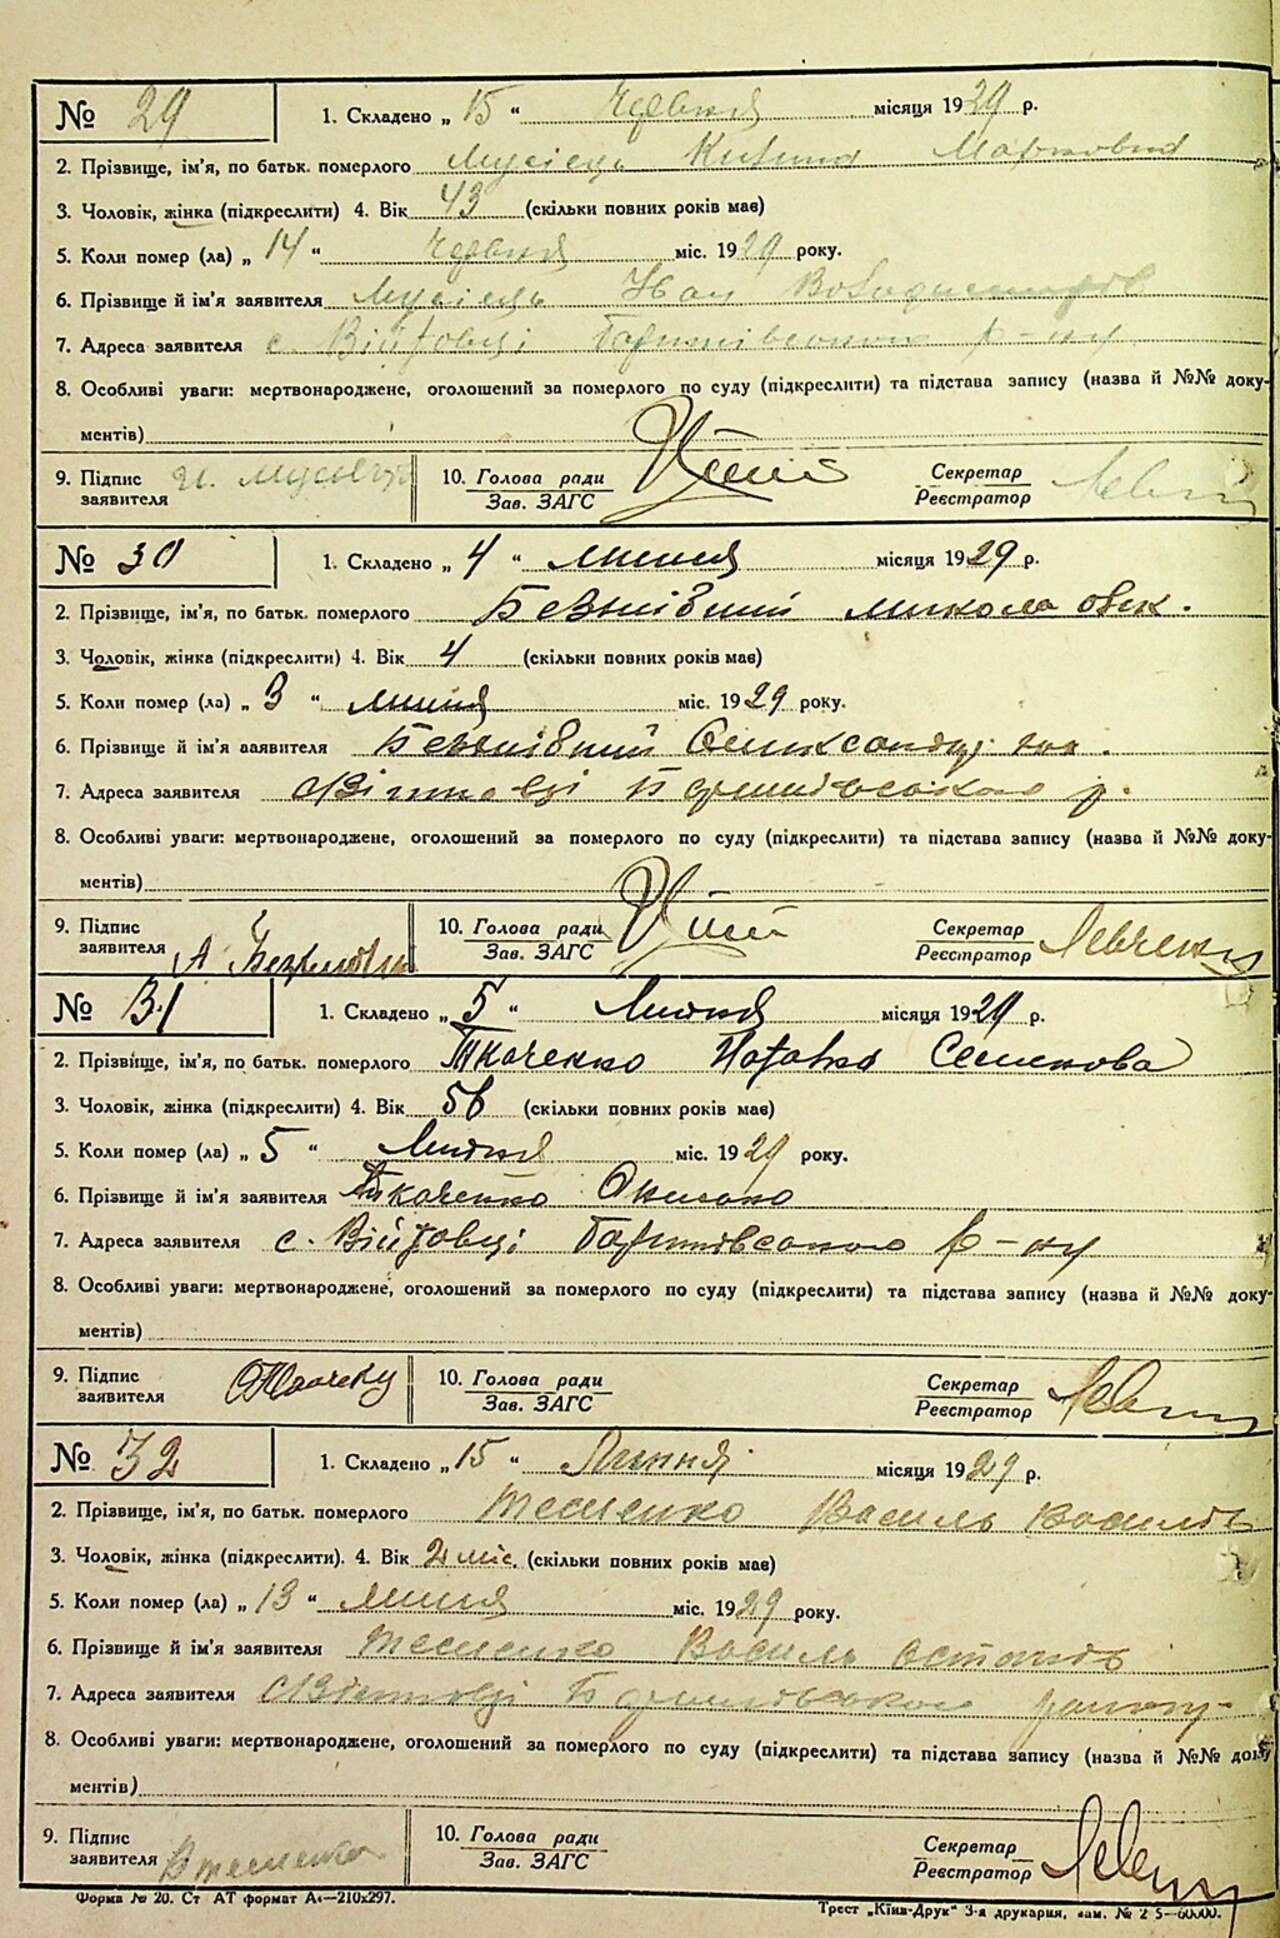 № 29 1. Складено „ 15 “ Червня місяця 1929 р.
2. Прізвище, ім'я, по батьк. померлого Мусієць Килина Марковна
3. Чоловік, жінка (підкреслити) 4. Вік 43 (скільки повних років має)
5. Коли помер (ла) „ 14 “ Червня міс. 1929 року.
6. Прізвище й ім'я заявителя Мусієць Іван
7. Адреса заявителя с. Війтовці р-ну
8. Особливі уваги: мертвонароджене, оголошений за померлого по суду (підкреслити) та підстава запису (назва й №№ доку-
ментів)
9. Підпис заявителя 10. Голова ради Зав. ЗАГС Секретар Реєстратор
№ 30 1. Складено „ 4 “ липня місяця 1929 р.
2. Прізвище, ім'я, по батьк. померлого Микола
3. Чоловік, жінка (підкреслити) 4. Вік 4 (скільки повних років має)
5. Коли помер (ла) „ 3 “ липня міс. 1929 року.
6. Прізвище й ім'я заявителя
7. Адреса заявителя р.
8. Особливі уваги: мертвонароджене, оголошений за померлого по суду (підкреслити) та підстава запису (назва й №№ доку-
ментів)
9. Підпис заявителя А 10. Голова ради Зав. ЗАГС Секретар Реєстратор Левченко
№ 31 1. Складено „ 5 “ Липня місяця 1929 р.
2. Прізвище, ім'я, по батьк. померлого Ткаченко Наталка Семенова
3. Чоловік, жінка (підкреслити) 4. Вік 56 (скільки повних років має)
5. Коли помер (ла) „ 5 “ Липня міс. 1929 року.
6. Прізвище й ім'я заявителя Ткаченко
7. Адреса заявителя с. Війтовці р-ну
8. Особливі уваги: мертвонароджене, оголошений за померлого по суду (підкреслити) та підстава запису (назва й №№ доку-
ментів)
9. Підпис заявителя 10. Голова ради Зав. ЗАГС Секретар Реєстратор
№ 32 1. Складено „ 15 “ Липня місяця 1929 р.
2. Прізвище, ім'я, по батьк. померлого Тесленко Василь Василів
3. Чоловік, жінка (підкреслити). 4. Вік 2 міс. (скільки повних років має)
5. Коли помер (ла) „ 13 “ липня міс. 1929 року.
6. Прізвище й ім'я заявителя Тесленко Василь Остапів
7. Адреса заявителя району
8. Особливі уваги: мертвонароджене, оголошений за померлого по суду (підкреслити) та підстава запису (назва й №№ доку-
ментів)
9. Підпис заявителя В Тесленко 10. Голова ради Зав. ЗАГС Секретар Реєстратор
Форма № 20. Ст АТ формат А4—210x297.
Трест „Київ-Друк“ 3-я друкарня, зам. №